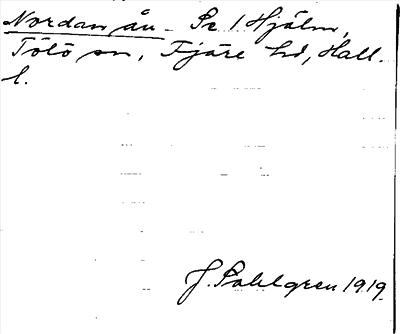 Nordan ån - Se 1 Hjälm,
Tölö sn, Fjäre hd, Hall.
l.
J. Sahlgren 1919.